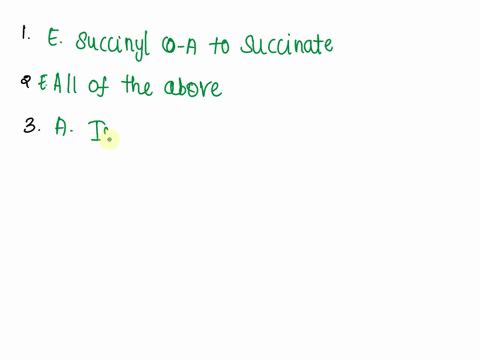 1. E. Succinyl O-A to Succinate
2 E All of the above
3. A. I